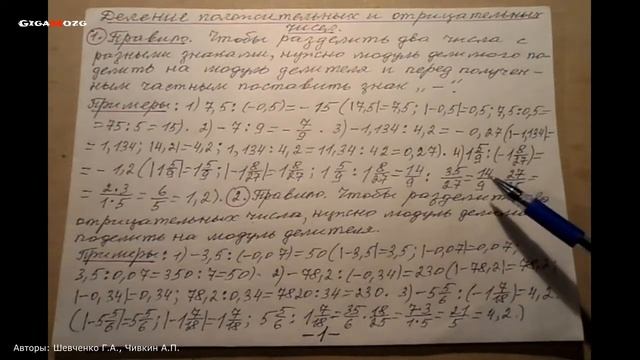 GIGAMOZG
Деление положительных и отрицательных
чисел.
1. Правило. Чтобы разделить два числа с
разными знаками, нужно модуль делимого по-
делить на модуль делителя и перед получен-
ным частным поставить знак „–".
Примеры: 1) 7,5:(-0,5)=-15(|7,5|=7,5; |-0,5|=0,5; 7,5:0,5=
=75:5=15). 2) -7:9=-7/9. 3) -1,134:4,2=-0,27(|-1,134|=
=1,134; |4,2|=4,2; 1,134:4,2=11,34:42=0,27). 4) 1 5/9:(-1 8/27)=
=-1,2(|1 5/9|=1 5/9; |-1 8/27|=1 8/27; 1 5/9:1 8/27=14/9:35/27=14/9 27/
=2·3/1·5=6/5=1,2). 2. Правило. Чтобы разделить
отрицательных числа, нужно модуль делимо
поделить на модуль делителя.
Примеры: 1) -3,5:(-0,07)=50(|-3,5|=3,5; |-0,07|=0,07;
3,5:0,07=350:7=50). 2) -78,2:(-0,34)=230(|-78,2|=78,2;
|-0,34|=0,34; 78,2:0,34=7820:34=230. 3) -5 5/6:(-1 7/18)=4,2
(|-5 5/6|=5 5/6; |-1 7/18|=1 7/18; 5 5/6:1 7/18=35/6·18/25=7·3/1·5=21/5=4,2.)
-1-
Авторы: Шевченко Г.А., Чивкин А.П.